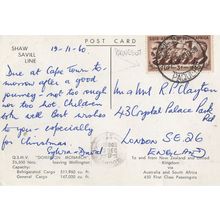 SHAW
SAVILL
LINE
19-11-60.
Due at Cape Town to-
morrow after a good
journey - not too rough
nor too hot. Children
join with best wishes
to you - especially
for Christmas.
Sylvia - David
Mr and Mrs R P Clayton
43 Crystal Palace Park
Rd
LONDON SE26
ENGLAND
Q.S.M.V. "DOMINION MONARCH"
26,500 Tons. leaving Wellington
Capacity:
Refrigerated Cargo 511,960 cu. ft.
General Cargo 147,000 cu. ft.
To and from New Zealand and United
Kingdom
via
Australia and South Africa
450 First Class Passengers